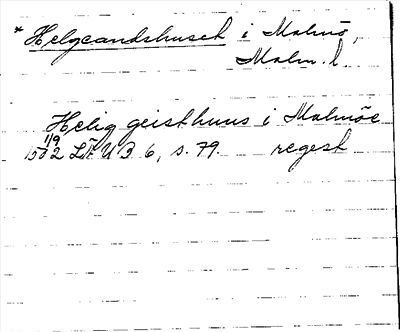 * Helgeandshuset i Malmö,
Malm. l.
Helig geisthuus i Malmöe
1/9
1502 LÄU B 6, s. 79. regest